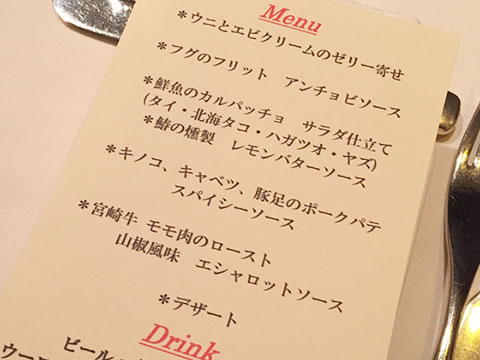 Menu
*ウニとエビクリームのゼリー寄せ
*フグのフリット アンチョビソース
*鮮魚のカルパッチョ サラダ仕立て
(タイ・北海タコ・ハガツオ・ヤズ)
*鰆の燻製 レモンバターソース
*キノコ、キャベツ、豚足のポークパテ
スパイシーソース
*宮崎牛 モモ肉のロースト
山椒風味 エシャロットソース
*デザート
Drink
ビール